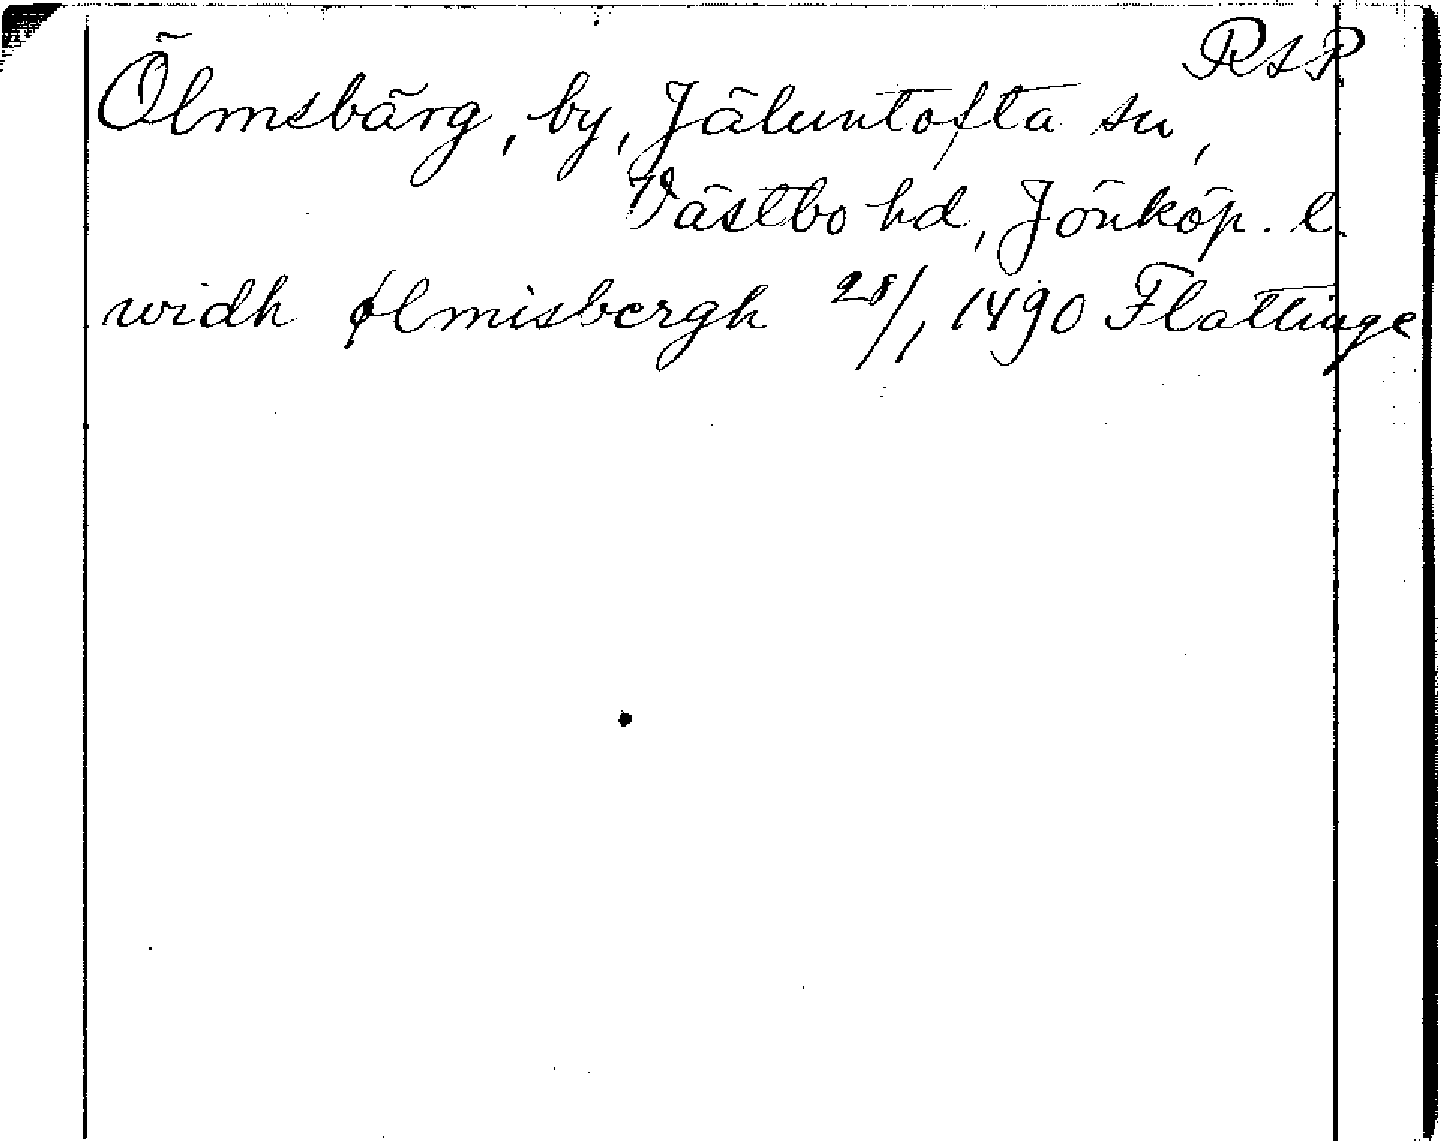 RAP
Ölmsbärg, by, Jäluntofta sn,
Västbo hd, Jönköp. l.
widh ølmisbergh 28/1 1490 Flattinge